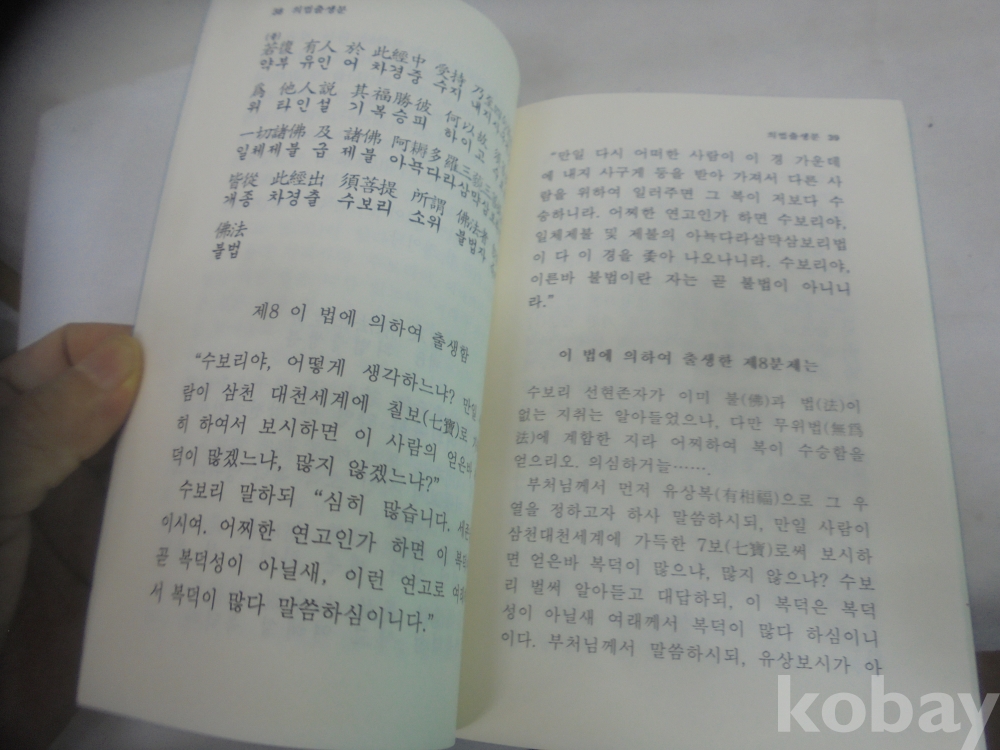 38 의법출생분
若復 有人 於 此經中 受持 乃至
약부 유인 어 차경중 수지 내지
爲 他人説 其福勝彼 何以故
위 타인설 기복승피 하이고
一切諸佛 及 諸佛 阿耨多羅三藐三
일체제불 급 제불 아뇩다라삼막삼보
皆從 此經出 須菩提 所謂 佛法者
개종 차경출 수보리 소위 불법자
佛法
불법
제8 이 법에 의하여 출생함
“수보리야, 어떻게 생각하느냐? 만일
람이 삼천 대천세계에 칠보(七寶)로
히 하여서 보시하면 이 사람의 얻은바
덕이 많겠느냐, 많지 않겠느냐?”
수보리 말하되 “심히 많습니다.
이시여. 어찌한 연고인가 하면 이
곧 복덕성이 아닐새, 이런 연고로
서 복덕이 많다 말씀하심이니다.”
의법출생분 39
“만일 다시 어떠한 사람이 이 경 가운데
에 내지 사구게 등을 받아 가져서 다른 사
람을 위하여 일러주면 그 복이 저보다 수
승하니라. 어찌한 연고인가 하면 수보리야,
일체제불 및 제불의 아뇩다라삼막삼보리법
이 다 이 경을 좇아 나오나니라. 수보리야,
이른바 불법이란 자는 곧 불법이 아니니
라.”
이 법에 의하여 출생한 제8분제는
수보리 선현존자가 이미 불(佛)과 법(法)이
없는 지취는 알아들었으나, 다만 무위법(無爲
法)에 계합한 지라 어찌하여 복이 수승함을
얻으리오. 의심하거늘…….
부처님께서 먼저 유상복(有相福)으로 그 우
열을 정하고자 하사 말씀하시되, 만일 사람이
삼천대천세계에 가득한 7보(七寶)로써 보시하
면 얻은바 복덕이 많으냐, 많지 않으냐? 수보
리 벌써 알아듣고 대답하되, 이 복덕은 복덕
성이 아닐새 여래께서 복덕이 많다 하심이니
이다. 부처님께서 말씀하시되, 유상보시가 아
kobay